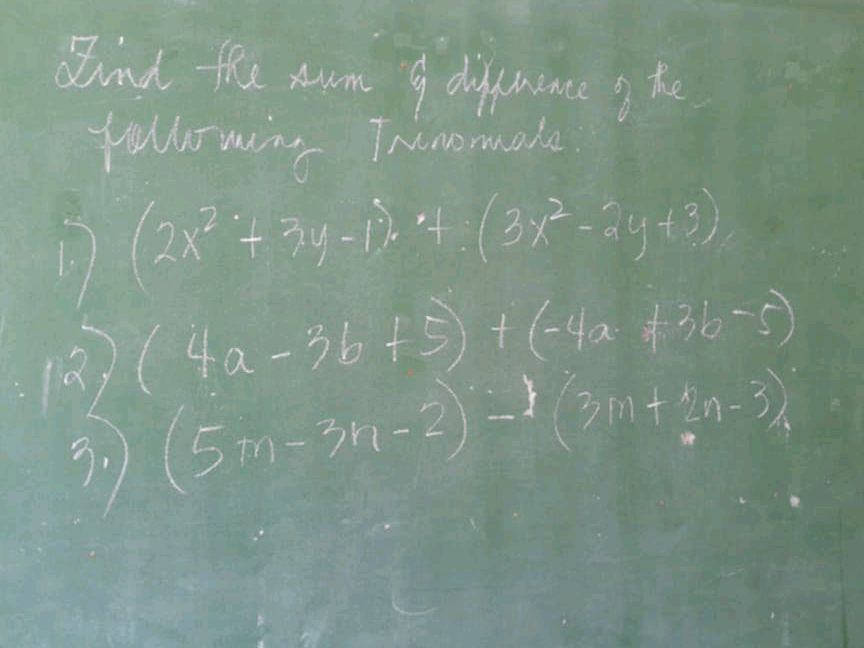 Find the sum & difference of the
following Trinomials:
1.) (2x² + 3y - 1) + (3x² - 2y + 3)
2.) (4a - 3b + 5) + (-4a + 3b - 5)
3.) (5m - 3n - 2) - (3m + 2n - 3)